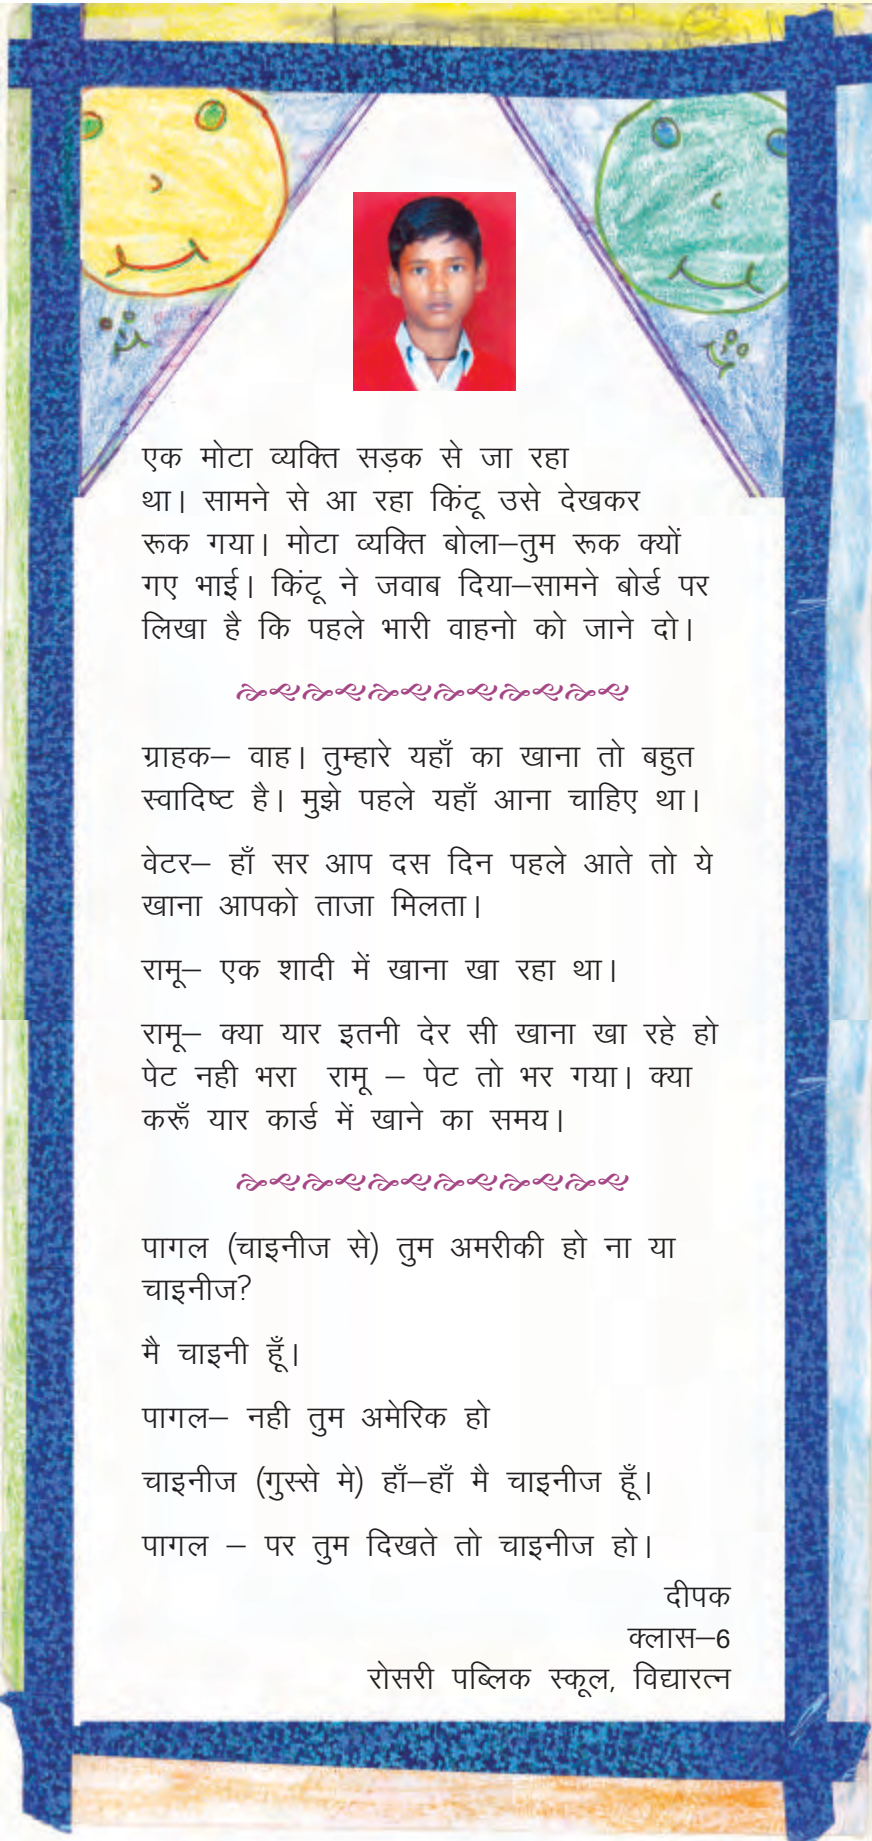 एक मोटा व्यक्ति सड़क से जा रहा
था। सामने से आ रहा किंटू उसे देखकर
रूक गया। मोटा व्यक्ति बोला–तुम रूक क्यों
गए भाई। किंटू ने जवाब दिया–सामने बोर्ड पर
लिखा है कि पहले भारी वाहनो को जाने दो।
ग्राहक– वाह। तुम्हारे यहाँ का खाना तो बहुत
स्वादिष्ट है। मुझे पहले यहाँ आना चाहिए था।
वेटर– हाँ सर आप दस दिन पहले आते तो ये
खाना आपको ताजा मिलता।
रामू– एक शादी में खाना खा रहा था।
रामू– क्या यार इतनी देर सी खाना खा रहे हो
पेट नही भरा रामू – पेट तो भर गया। क्या
करूँ यार कार्ड में खाने का समय।
पागल (चाइनीज से) तुम अमरीकी हो ना या
चाइनीज?
मै चाइनी हूँ।
पागल– नही तुम अमेरिक हो
चाइनीज (गुस्से मे) हाँ–हाँ मै चाइनीज हूँ।
पागल – पर तुम दिखते तो चाइनीज हो।
दीपक
क्लास–6
रोसरी पब्लिक स्कूल, विद्यारत्न